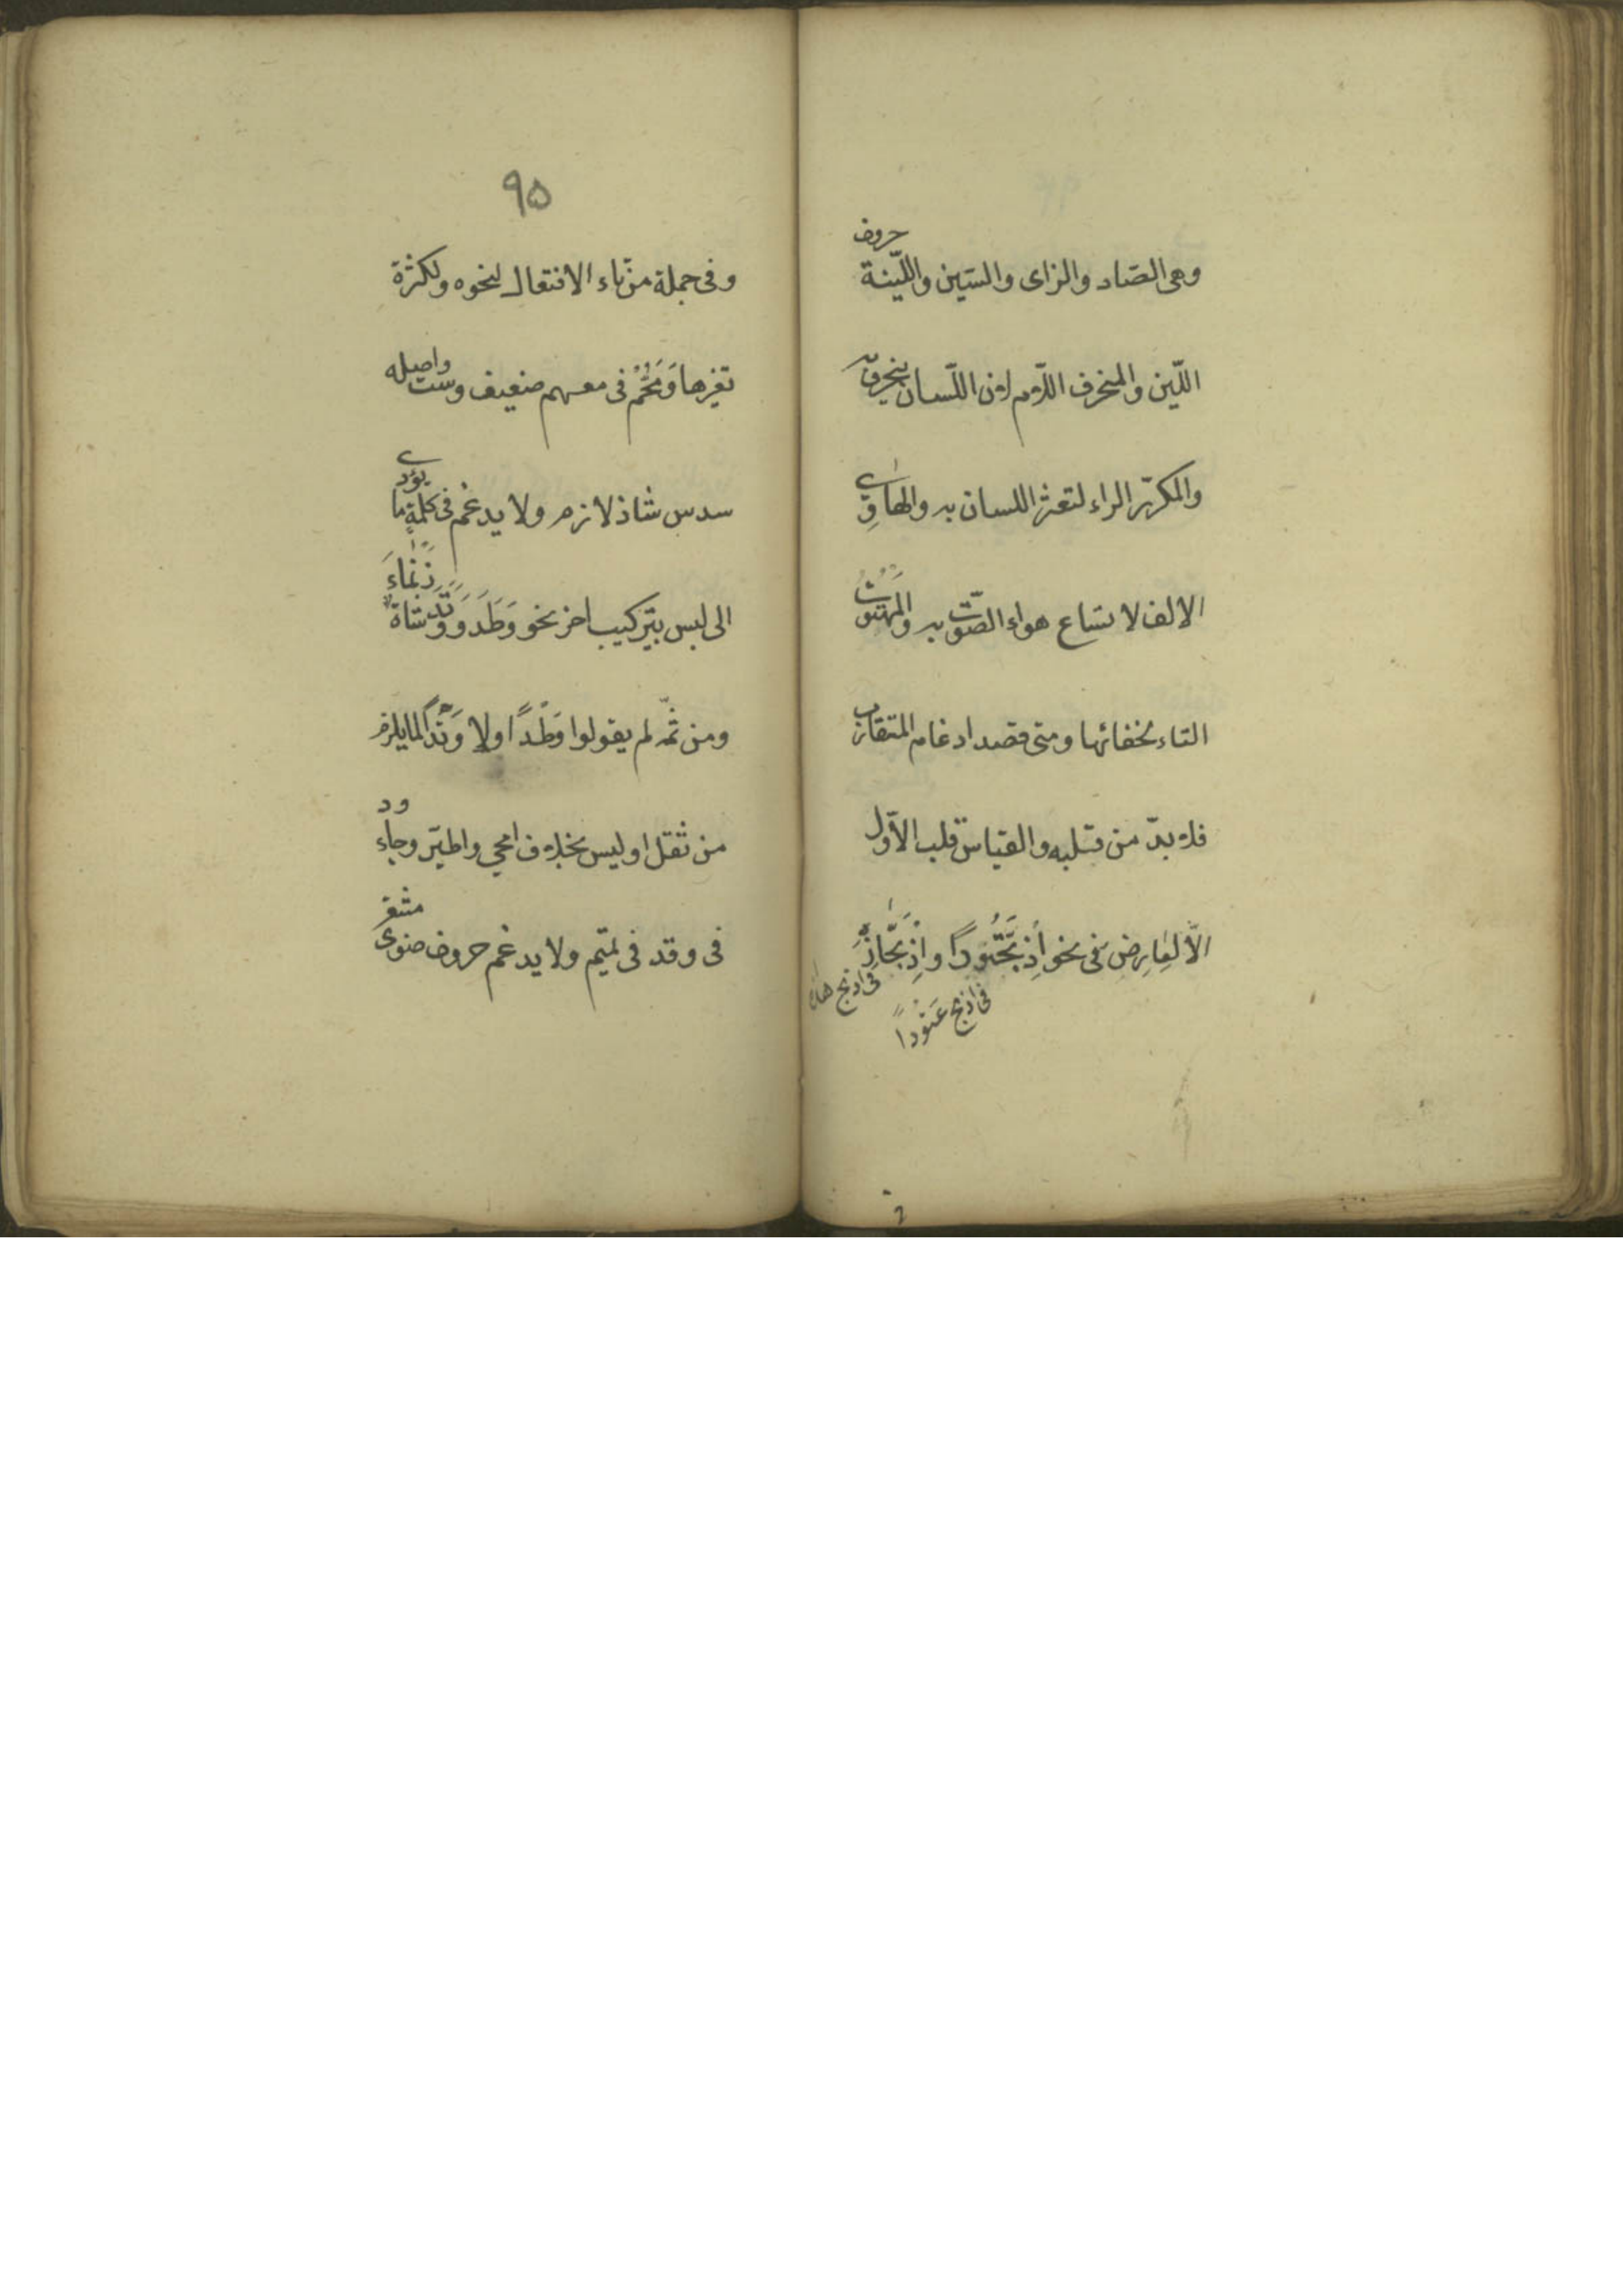 وهى الصّاد والزاى والسّين واللّيّنة حروف
اللّين والمنحرف اللّام لان اللّسان ينحرف به
والمكرّر الراء لتعثر اللسان به والهاوِى
الالف لاتساع هواء الصّوت به والمهتوت
التاء لخفائها ومتى قصد ادغام المتقارب
فلا بدّ من قلبه والقياس قلب الاوّل
الاّ لعارض فى نحو اذبَحَّتُودًا واذْبَحَّاذِه
فى اذبح عَتُودًا
فى اذبح هذه
٩٥
وفى جملة من تاء الافتعال لنحوه ولكثرة
تغيّرها وَمَحُّمْ فى معهم ضعيف وست واصله
سدس شاذ لازم ولا يدغم فى كلمةٍ ما يؤدى
الى لبس بتركيب اخر نحو وَطَدَ وَوَتَدَ وشاة زَنْماءَ
ومن ثمّه لم يقولوا وَطْدًا ولا وَتْدًا لما يلزم
من ثقل او لبس بخلاف امحى واطيّر وجاء ودّ
فى وتد فى تميم ولا يدغم حروف ضوى مشفر